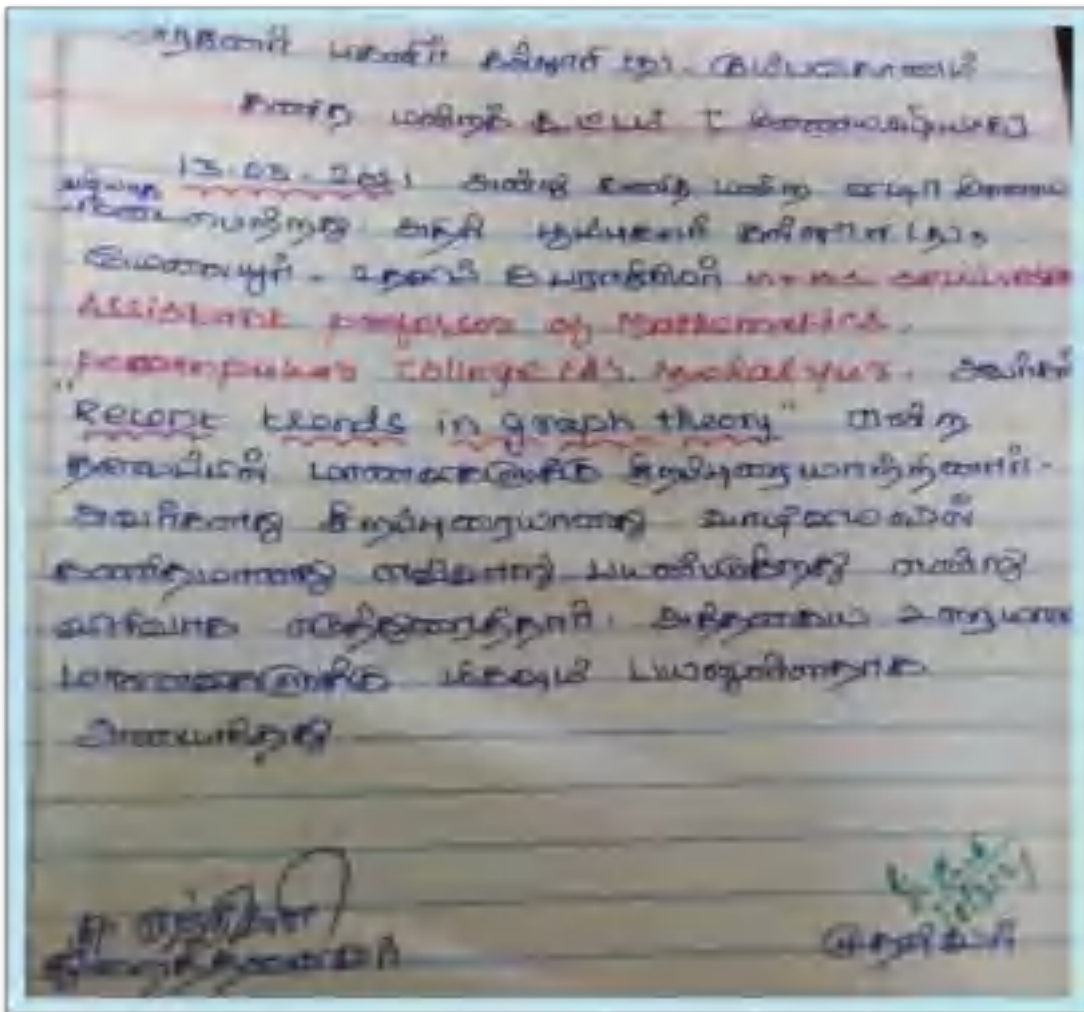 மகளிர் கல்லூரி (த). கும்பகோணம்
கணித மன்றக் கூட்டம் [ இணையவழியாக ]
13.03.2021 அன்று கணித மன்ற
நடைபெற்றது. அதில் பூம்புகார் கல்லூரி (த),
மேலையூர். உதவிப் பேராசிரியர்
Assistant professor of Mathematics.
Poompuhar College (A), Melaiyur. அவர்கள்
"Recent trends in graph theory" என்ற
தலைப்பில் மாணவிகளுக்கு சிறப்புரையாற்றினார்.
அவர்களது சிறப்புரையானது வாழ்க்கையில்
கணிதமானது எவ்வாறு பயன்படுகிறது என்று
விரிவாக எடுத்துரைத்தார். அத்தகைய உரை
மாணவிகளுக்கு மிகவும் பயனுள்ளதாக
அமைகிறது
துறைத்தலைவர்
முதல்வர்